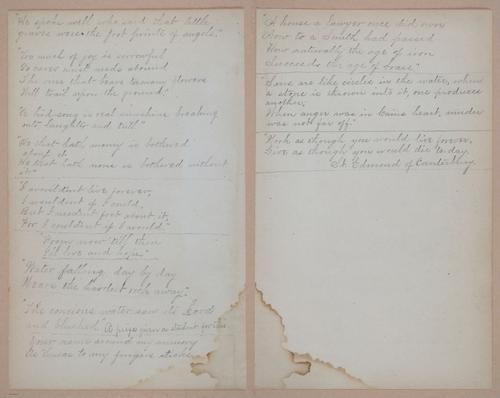 "He spoke well who said that little
graves were the foot prints of angels."
"Too much of joy is sorrowful
So cares must needs abound
The vine that bears too many flowers
Will trail upon the ground."
"A bird song is real sunshine breaking
into laughter and trill"
"He that hath money is bothered
about it
He that hath none is bothered without
it"
"I wouldn't live forever,
I wouldn't if I could,
But I needn't fret about it,
For I couldn't if I would."
"From now till then
I'll live and hope"
"Water falling day by day
Wears the hardest rock away."
"The conscious water saw its Lord
and blushed"
Your name around my memory
As to my fingers sticks
"A house a Lawyer once did own
Now to a Smith had passed
How naturally the age of iron
Succeeds the age of brass"
"Sins are like circles in the water, when
a stone is thrown into it, one produces
another,
When anger was in Cain's heart, murder
was not far off."
"Work as though you would live forever,
Give as though you would die to-day.
St. Edmond of Canterbury